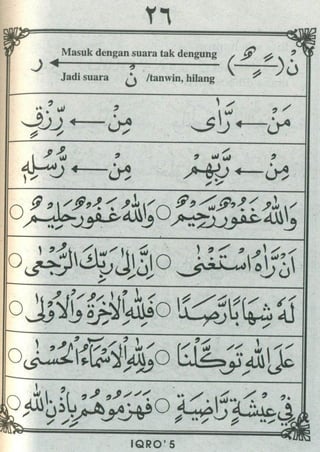 ٢٦
نْ (ــًــٍــٌ) ← Masuk dengan suara tak dengung ر
Jadi suara نْ /tanwin, hilang
مَنْ ← رَّاى مِنْ ← رِّزْقٍ
مِنْ ← رَّبِّهِمْ مِنْ ← رُّسُلِهٖ
وَاللّٰهُ غَفُوْرٌ رَّحِيْمٌ ○ وَاللّٰهُ غَفُوْرٌ حَلِيْمٌ ○
اَنْ رَّاٰهُ اسْتَغْنٰى ○ اِنَّ اِلٰى رَبِّكَ الرُّجْعٰى ○
لَهٗ شِهَابًا رَّصَدًا ○ فَلِلّٰهِ الْاٰخِرَةُ وَالْاُوْلٰى ○
عَلَى اللّٰهِ تَوَكَّلْنَا ○ وَلِلّٰهِ الْاَسْمَاۤءُ الْحُسْنٰى ○
فِيْ عِيْشَةٍ رَّاضِيَةٍ ○ فَهَزَمُوْهُمْ بِاِذْنِ اللّٰهِ ○
IQRO' 5